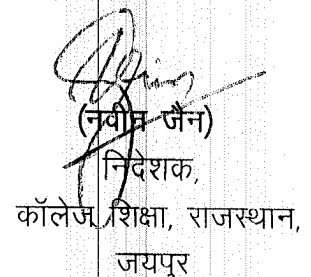 (नवीन जैन)
निदेशक,
कॉलेज शिक्षा, राजस्थान,
जयपुर